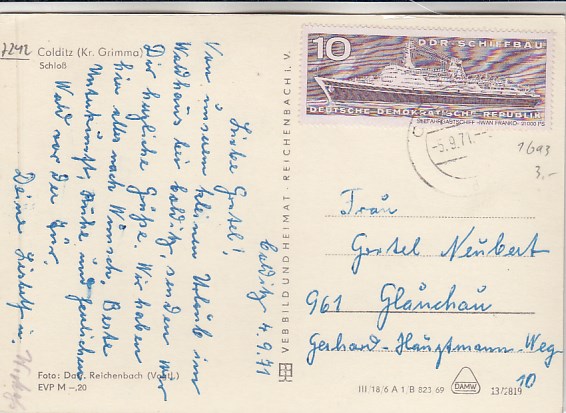 7242
Colditz (Kr. Grimma)
Schloß
Colditz 4.9.71
Liebe Gretel!
Von unserm kleinen Urlaub im
Waldhaus bei Colditz, senden wir
Dir herzliche Grüße. Wir haben
hier alles nach Wunsch. Beste
Unterkunft, Ruhe und herrlichen
Wald vor der Tür.
Deine
Foto: Dat. Reichenbach (Vogtl.)
EVP M –,20
VEB BILD UND HEIMAT · REICHENBACH I. V.
10
DDR-SCHIFFBAU
DEUTSCHE DEMOKRATISCHE REPUBLIK
»IWAN FRANKO« 21000 PS
-5.9.71.
1693
3,-
Frau
Gretel Neubert
961 Glauchau
Gerhard-Hauptmann-Weg
10
III/18/6 A 1/B 823 69
DAMW
13/2819